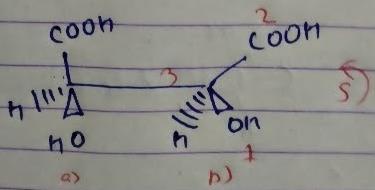 2
COOH COOH
3
H S
HO H OH
1
a) b)